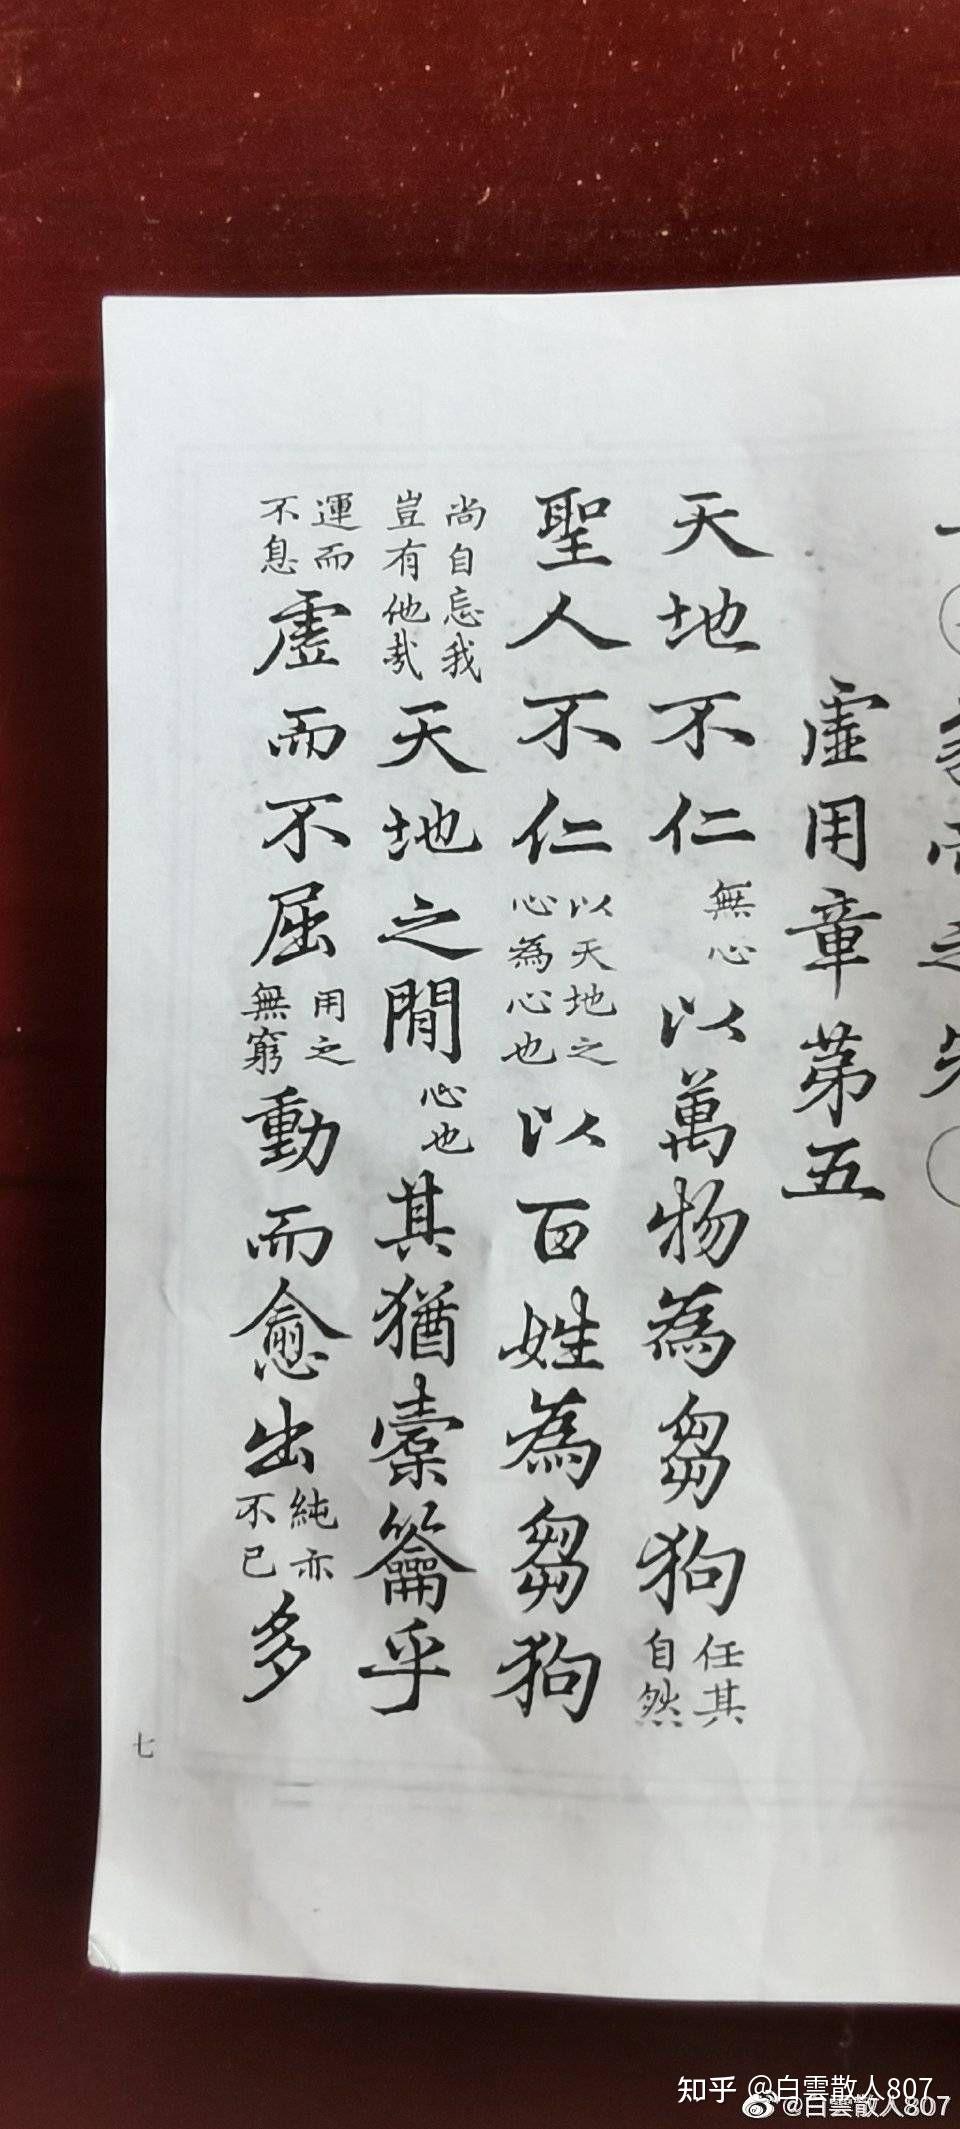 虛用章第五
天地不仁無心以萬物為芻狗任其自然
聖人不仁以天地之心為心也以百姓為芻狗
尚自忘我豈有他哉天地之間心也其猶橐籥乎
運而不息虛而不屈用之無窮動而愈出純亦不已多
七
知乎 @白雲散人807
@白雲散人807